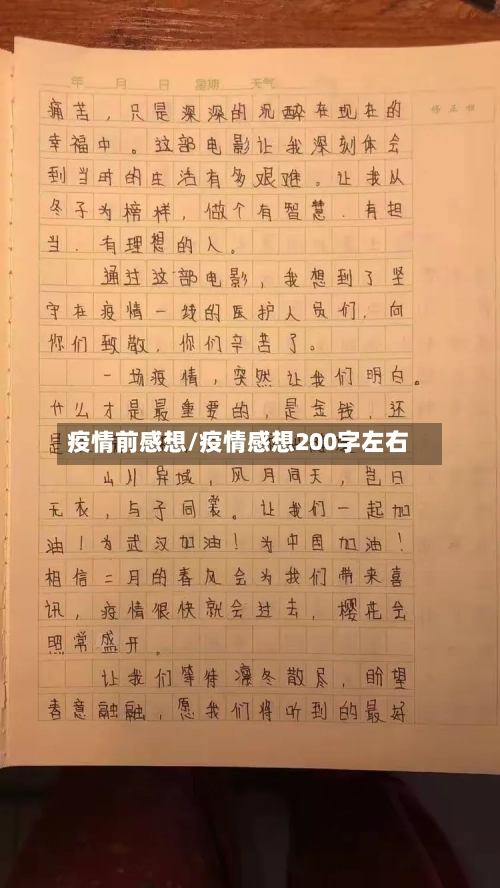 年 月 日 星期 天气
痛苦，只是深深的沉醉在现在的
幸福中。这部电影让我深刻体会
到当时的生活有多艰难。让我从
冬子为榜样，做个有智慧．有担
当．有理想的人。
通过这部电影，我想到了坚
守在疫情一线的医护人员们，向
你们致敬，你们辛苦了。
一场疫情，突然让我们明白。
什么才是最重要的，是金钱，还
是
疫情前感想/疫情感想200字左右
山川异域，风月同天，岂曰
无衣，与子同裳。让我们一起加
油！为武汉加油！为中国加油！
相信二月的春风会为我们带来喜
讯，疫情很快就会过去，樱花会
照常盛开。
让我们等待凛冬散尽，盼望
春意融融，愿我们将听到的最好